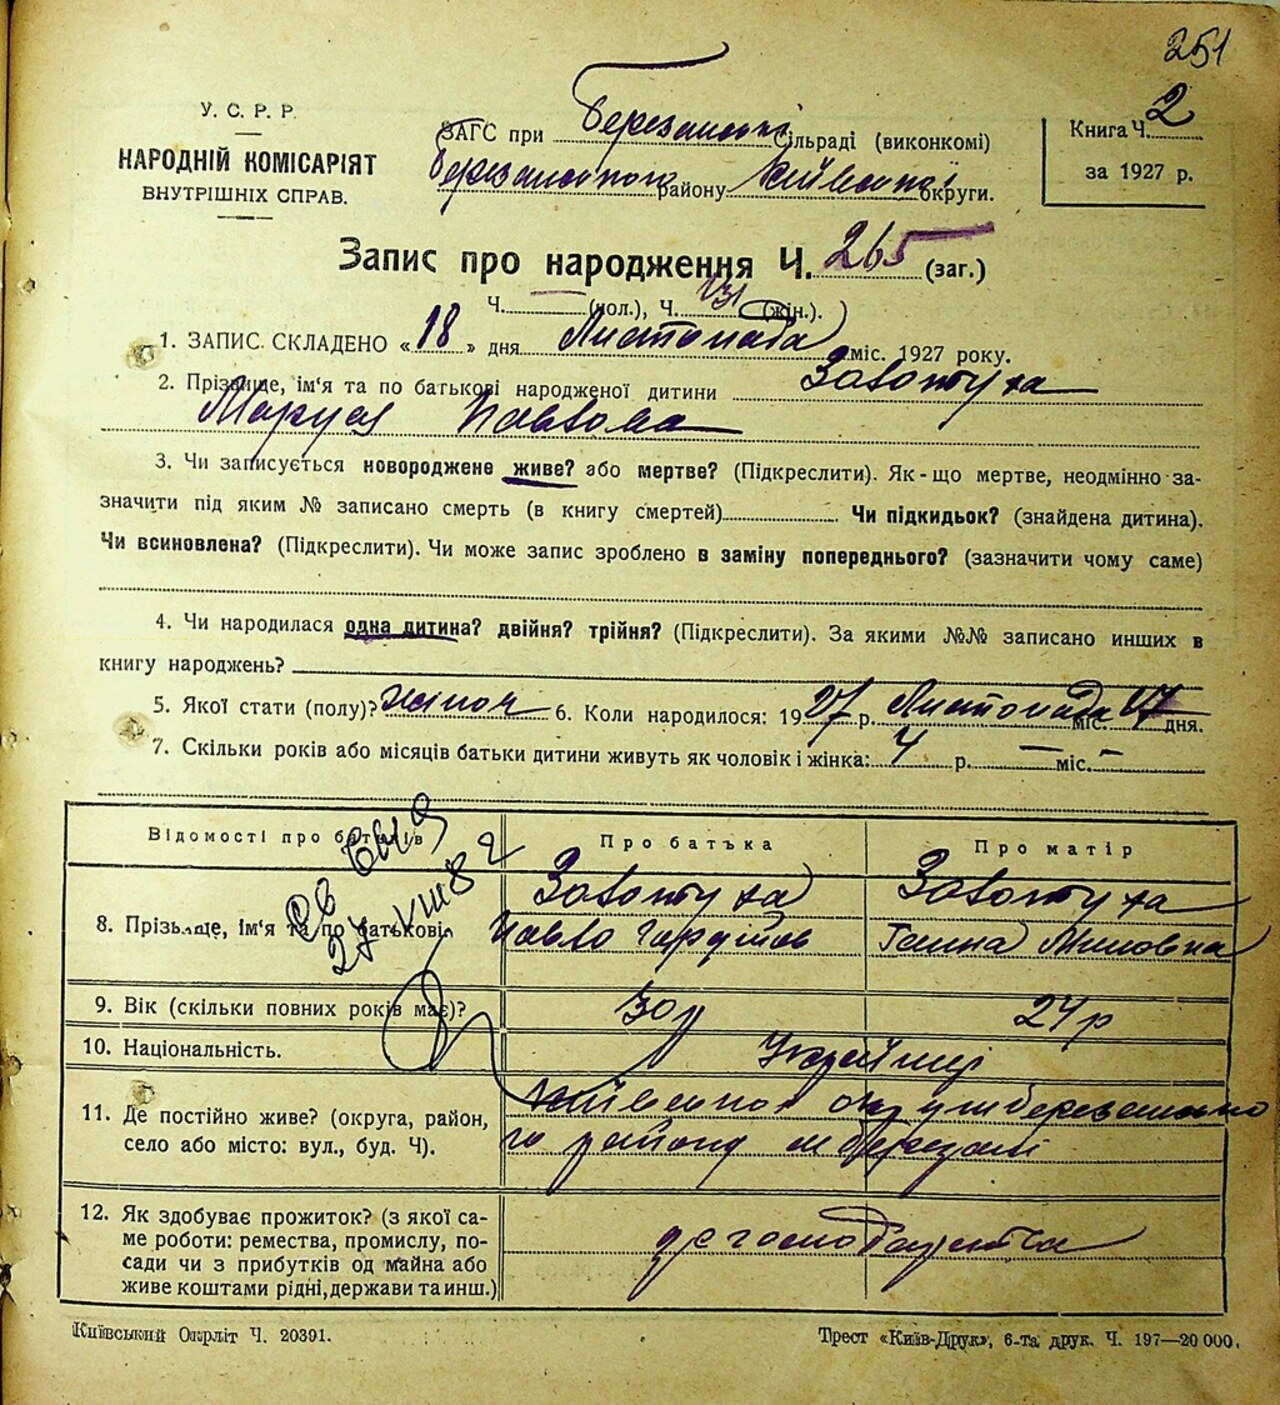 251
У. С. Р. Р.
НАРОДНІЙ КОМІСАРІЯТ
ВНУТРІШНІХ СПРАВ.
ЗАГС при Березанській Сільраді (виконкомі)
Березанського району Київської округи.
Книга Ч. 2
за 1927 р.
Запис про народження Ч. 265 (заг.)
Ч. (чол.), Ч. 131 (жін.).
1. ЗАПИС СКЛАДЕНО «18» дня Листопада міс. 1927 року.
2. Прізвище, ім'я та по батькові народженої дитини Заволтуха
Маруся Павлова
3. Чи записується новороджене живе? або мертве? (Підкреслити). Як-що мертве, неодмінно за-
значити під яким № записано смерть (в книгу смертей) Чи підкидьок? (знайдена дитина).
Чи всиновлена? (Підкреслити). Чи може запис зроблено в заміну попереднього? (зазначити чому саме)
4. Чи народилася одна дитина? двійня? трійня? (Підкреслити). За якими №№ записано инших в
книгу народжень?
5. Якої стати (полу)? жіноч 6. Коли народилося: 1927 р. Листопада міс. 17 дня.
7. Скільки років або місяців батьки дитини живуть як чоловік і жінка: 4 р. — міс. —
Відомості про батьків Про батька Про матір
8. Прізьище, ім'я та по батькові. Заволтуха Заволтуха
Павло Ганна
9. Вік (скільки повних років має)? 30 р 24 р
10. Національність. Українці
11. Де постійно живе? (округа, район, Київської округи Березансько
село або місто: вул., буд. Ч). го району м Березані
12. Як здобуває прожиток? (з якої са-
ме роботи: ремества, промислу, по-
сади чи з прибутків од майна або
живе коштами рідні, держави та инш.)
Київський Окрліт Ч. 20391.
Трест «Київ-Друк», 6-та друк. Ч. 197—20 000.